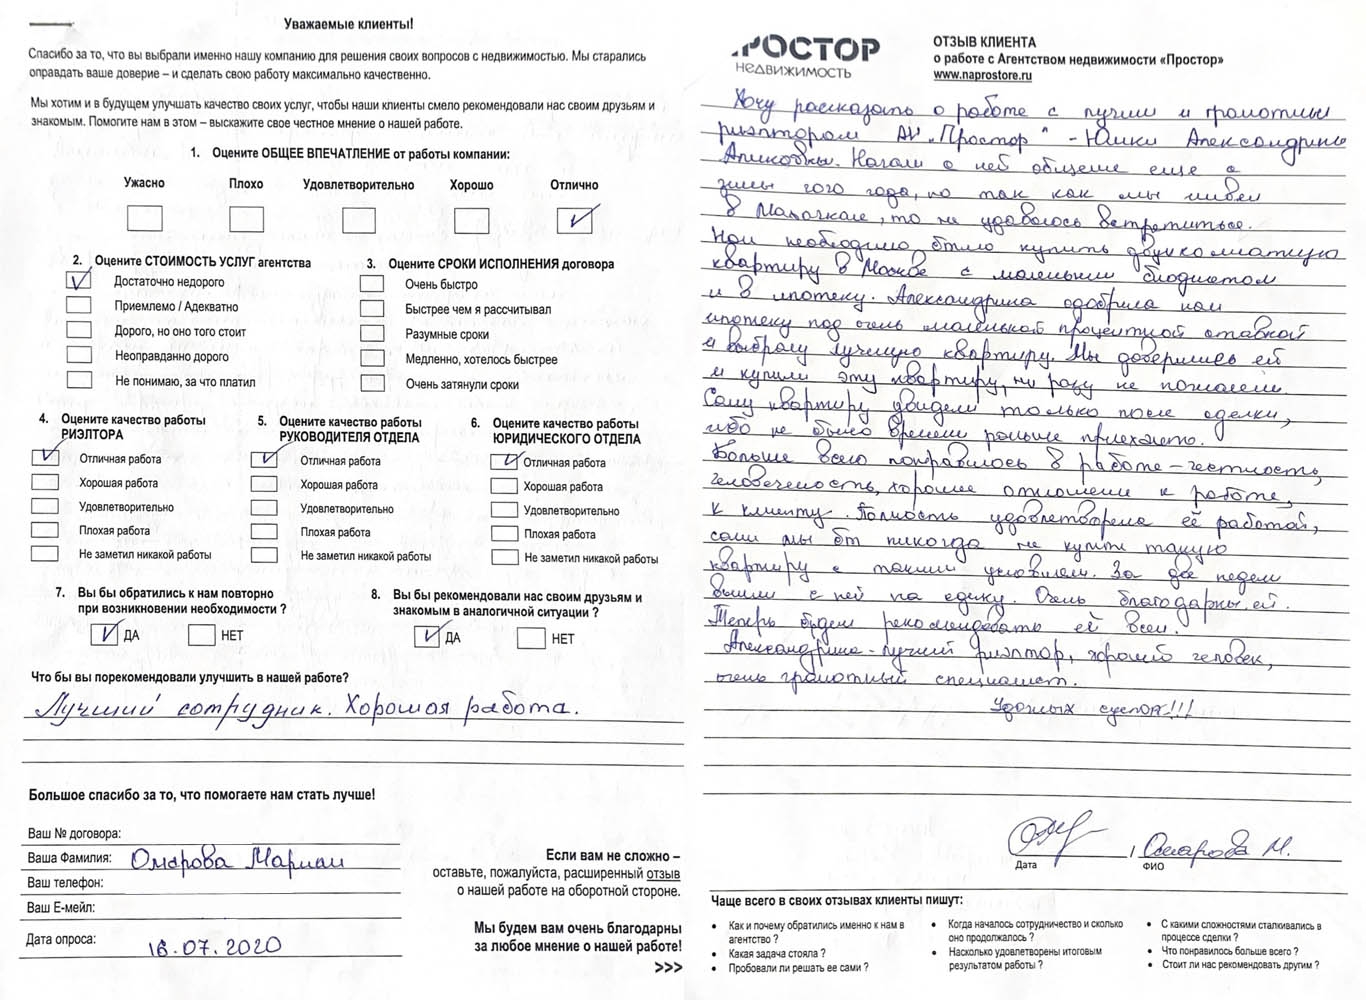 Уважаемые клиенты!
Спасибо за то, что вы выбрали именно нашу компанию для решения своих вопросов с недвижимостью. Мы старались
оправдать ваше доверие – и сделать свою работу максимально качественно.
Мы хотим и в будущем улучшать качество своих услуг, чтобы наши клиенты смело рекомендовали нас своим друзьям и
знакомым. Помогите нам в этом – выскажите свое честное мнение о нашей работе.
1. Оцените ОБЩЕЕ ВПЕЧАТЛЕНИЕ от работы компании:
Ужасно Плохо Удовлетворительно Хорошо Отлично
2. Оцените СТОИМОСТЬ УСЛУГ агентства
Достаточно недорого
Приемлемо / Адекватно
Дорого, но оно того стоит
Неоправданно дорого
Не понимаю, за что платил
3. Оцените СРОКИ ИСПОЛНЕНИЯ договора
Очень быстро
Быстрее чем я рассчитывал
Разумные сроки
Медленно, хотелось быстрее
Очень затянули сроки
4. Оцените качество работы
РИЭЛТОРА
Отличная работа
Хорошая работа
Удовлетворительно
Плохая работа
Не заметил никакой работы
5. Оцените качество работы
РУКОВОДИТЕЛЯ ОТДЕЛА
Отличная работа
Хорошая работа
Удовлетворительно
Плохая работа
Не заметил никакой работы
6. Оцените качество работы
ЮРИДИЧЕСКОГО ОТДЕЛА
Отличная работа
Хорошая работа
Удовлетворительно
Плохая работа
Не заметил никакой работы
7. Вы бы обратились к нам повторно
при возникновении необходимости ?
ДА НЕТ
8. Вы бы рекомендовали нас своим друзьям и
знакомым в аналогичной ситуации ?
ДА НЕТ
Что бы вы порекомендовали улучшить в нашей работе?
Лучший сотрудник. Хорошая работа.
Большое спасибо за то, что помогаете нам стать лучше!
Ваш № договора:
Ваша Фамилия: Омарова Мариам
Ваш телефон:
Ваш Е-мейл:
Дата опроса: 16.07.2020
Если вам не сложно –
оставьте, пожалуйста, расширенный отзыв
о нашей работе на оборотной стороне.
Мы будем вам очень благодарны
за любое мнение о нашей работе!
>>>
ПРОСТОР
недвижимость
ОТЗЫВ КЛИЕНТА
о работе с Агентством недвижимости «Простор»
www.naprostore.ru
Хочу рассказать о работе с лучшим и грамотным
риэлтором АН "Простор" - Александрине
Начали с ней общение еще с
зимы того года, но так как мы живем
в Махачкале, то не удавалось встретиться.
Нам необходимо было купить двухкомнатную
квартиру в Москве с маленьким бюджетом
и в ипотеку. Александрина одобрила нам
ипотеку под очень маленькой процентной ставкой
и выбрала лучшую квартиру. Мы доверились ей
и купили эту квартиру, ни разу не пожалели.
Саму квартиру увидели только после сделки,
ибо не было времени раньше приехать.
Больше всего понравилось в работе – честность,
человечность, хорошее отношение к работе,
к клиенту. Полность удовлетворена её работой,
сами мы бы никогда не купили такую
квартиру с такими условиями. За две недели
вышли с ней на сделку. Очень благодарны ей.
Теперь будем рекомендовать ей всем.
Александрина - лучший риэлтор, хороший человек,
очень грамотный специалист.
Удачных сделок!!!
Дата / Омарова М.
ФИО
Чаще всего в своих отзывах клиенты пишут:
• Как и почему обратились именно к нам в
агентство ?
• Какая задача стояла ?
• Пробовали ли решать ее сами ?
• Когда началось сотрудничество и сколько
оно продолжалось ?
• Насколько удовлетворены итоговым
результатом работы ?
• С какими сложностями сталкивались в
процессе сделки ?
• Что понравилось больше всего ?
• Стоит ли нас рекомендовать другим ?